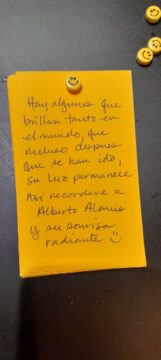 Hay algunos que
brillan tanto en
el mundo, que
incluso despues
que se han ido,
su luz permanece
Asi recordare a
Alberto Alanis
y su sonrisa
radiante